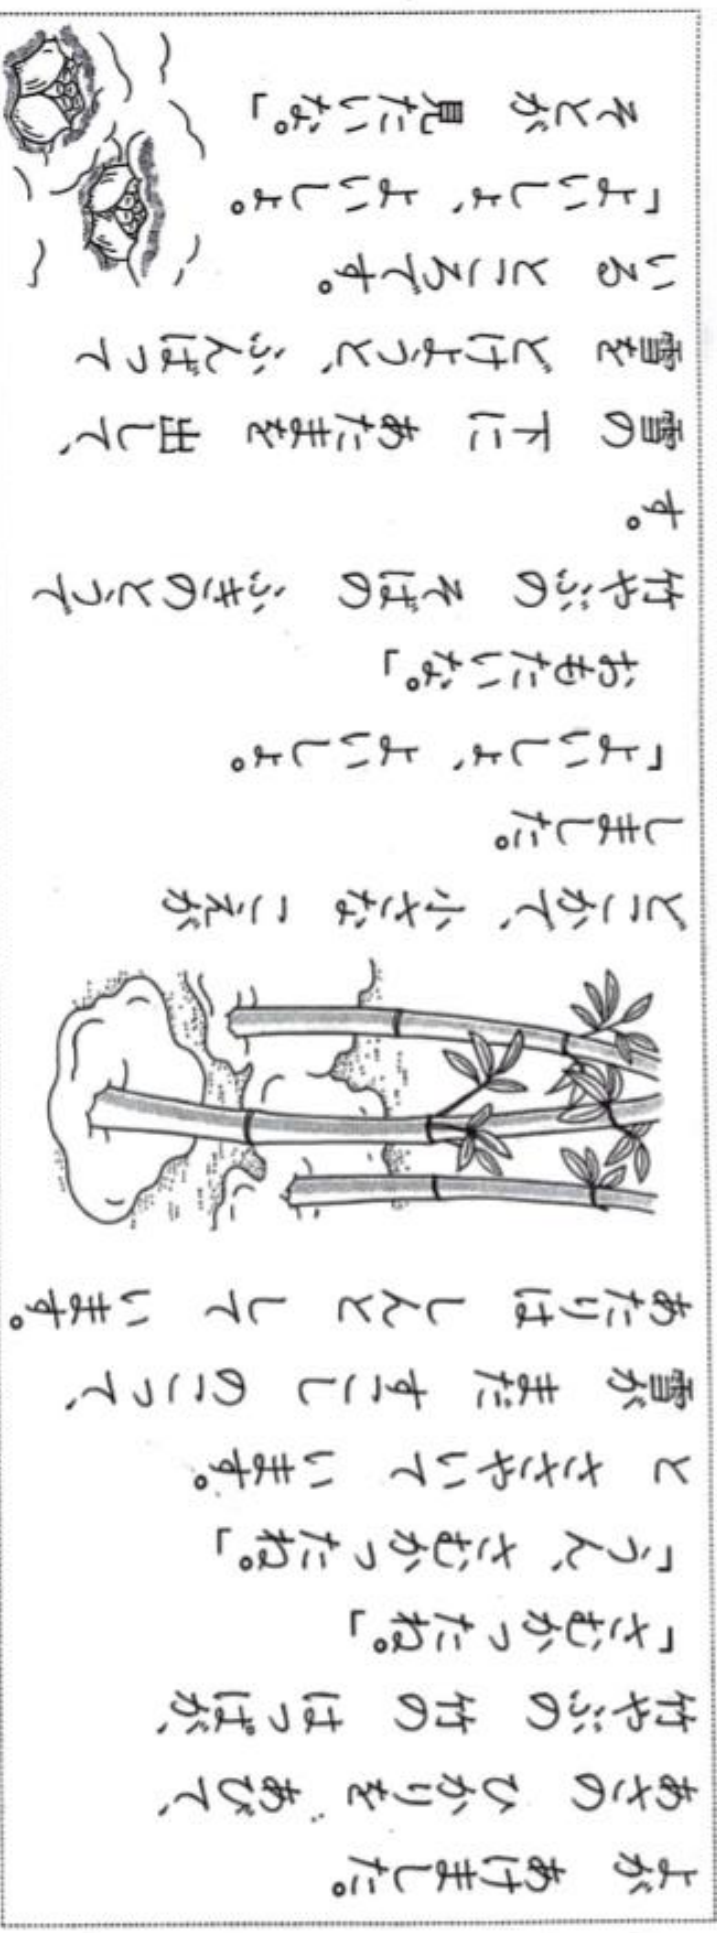 よが　あけました。
あさの　ひかりを　あびて、
竹やぶの　竹の　はっぱが、
「さむかったね。」
「うん、さむかったね。」
と　ささやいて　います。
雪が　まだ　すこし　のこって、
あたりは　しんと　して　います。
どこかで、小さな　こえが
しました。
「よいしょ、よいしょ。
おもたいな。」
竹やぶの　そばの　ふきのとうで
す。
雪の　下に　あたまを　出して、
雪を　どけようと、ふんばって
いる　ところです。
「よいしょ、よいしょ。
そとが　見たいな。」